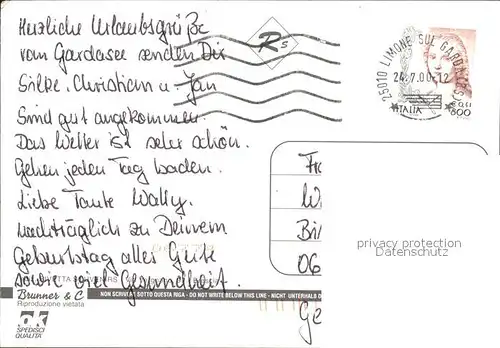 Herzliche Urlaubsgrüße
vom Gardasee senden Dir
Silke, Christian u. Jan
Sind gut angekommen.
Das Wetter ist sehr schön.
Gehen jeden Tag baden.
Liebe Tante Wally,
nachträglich zu Deinem
Geburtstag alles Gute
sowie viel Gesundheit.
R S
25010 LIMONE SUL GARDA (BS)
24.7.00-12
ITALIA
800
Fr
W
Bi
06
Ge
privacy protection
Datenschutz
Brunner & C
Riproduzione vietata
NON SCRIVERE SOTTO QUESTA RIGA - DO NOT WRITE BELOW THIS LINE - NICHT UNTERHALB D
OK
SPEDISCI
QUALITÀ